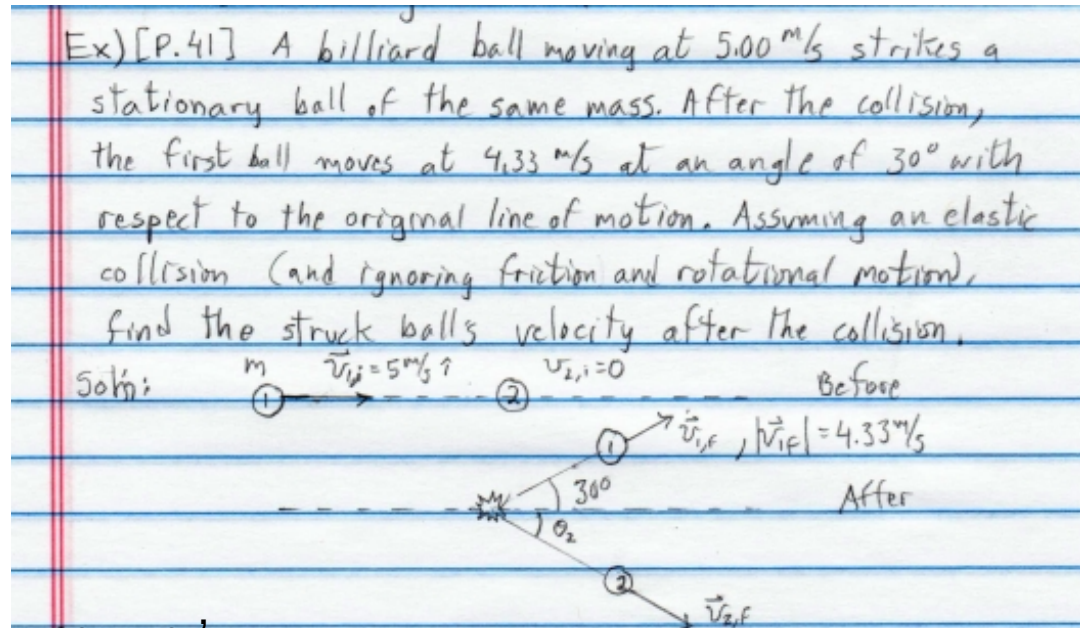 Ex) [P.41] A billiard ball moving at 5.00 m/s strikes a
stationary ball of the same mass. After the collision,
the first ball moves at 4.33 m/s at an angle of 30° with
respect to the original line of motion. Assuming an elastic
collision (and ignoring friction and rotational motion),
find the struck ball's velocity after the collision.
Sol'n: m v⃗₁,ᵢ = 5 m/s î v₂,ᵢ = 0
1 2 Before
1 v⃗₁,f , |v⃗₁f| = 4.33 m/s
30° After
θ₂
2
v⃗₂,f